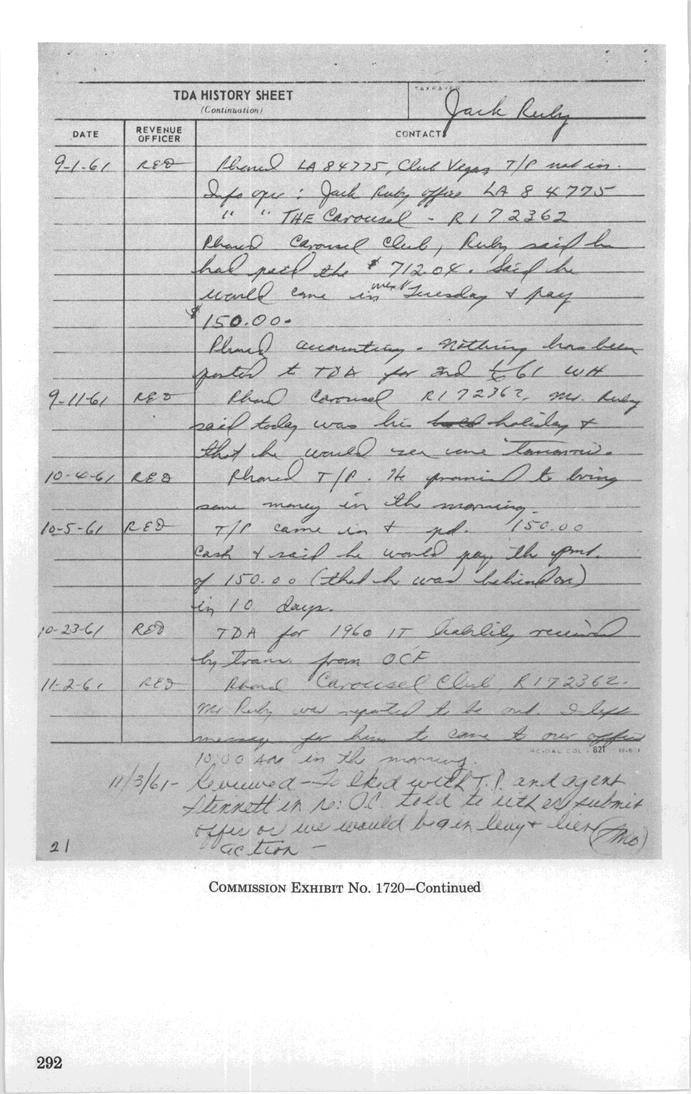 TDA HISTORY SHEET
(Continuation)
TAXPAYER
Jack Ruby
DATE
REVENUE OFFICER
CONTACT
9-1-61 RED Phoned LA 84775, Club Vegas T/P not in.
Info oper: Jack Ruby office LA 8 4775
" " THE Carousel - RI 72362
Phoned Carousel Club, Ruby said he
had paid the $712.04. Said he
would come in next Tuesday & pay
$150.00.
Phoned accounting. Nothing has been
posted to TDA for 2nd 1/4 61 WH
9-11-61 RED Phoned Carousel RI 72362, Mr. Ruby
said today was his holiday &
that he would see me tomorrow.
10-4-61 RED Phoned T/P. He promised to bring
some money in the morning.
10-5-61 RED T/P came in & pd. 150.00
Cash & said he would pay the pmt.
of 150.00 (that he was behind on)
in 10 days.
10-23-61 RED TDA for 1960 IT liability received
by trans. from OCF
11-2-61 RED Phoned Carousel Club RI 72362.
Mr Ruby was reported to be out. I left
message for him to come to our office
10:00 AM in the morning.
11/3/61- Reviewed - Talked with T.P. and agent
Stennett in re: OC told to either submit
offer or we would begin levy & lien
action - (MO)
21
COMMISSION EXHIBIT NO. 1720—Continued
292